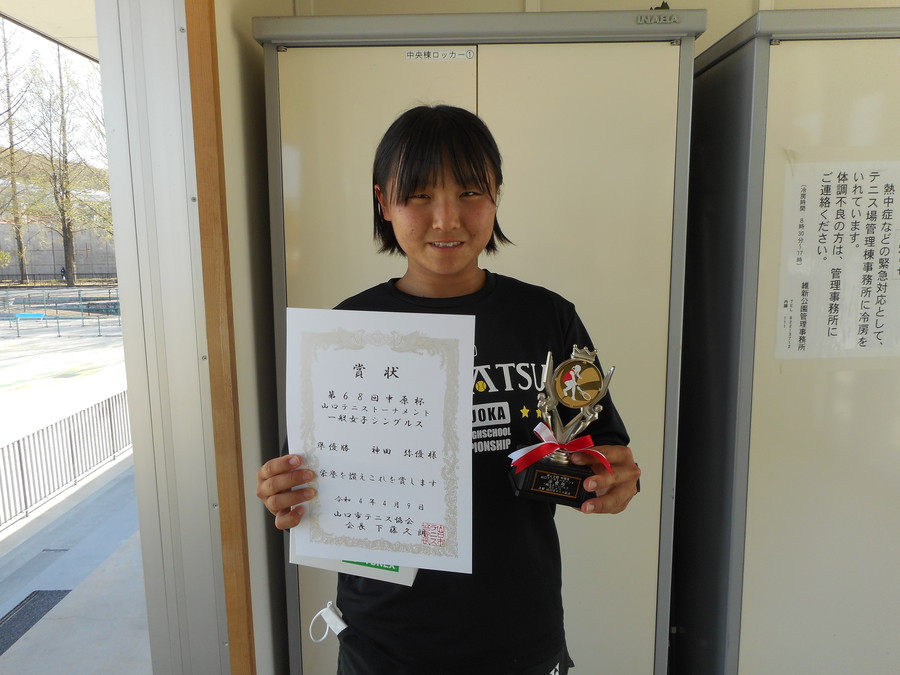 INABA
中央棟ロッカー①
賞状
第68回中原杯
山口テニストーナメント
一般女子シングルス
準優勝 神田 弥優様
栄誉を讃えこれを賞します
令和4年4月9日
山口市テニス協会
会長 下藤久
ATSU
UOKA
GHSCHOOL
PIONSHIP
熱中症などの緊急対応として、
テニス場管理棟事務所に冷房を
いれています。
体調不良の方は、管理事務所に
ご連絡ください。
(冷房時間 8時30分~17時)
維新公園管理事務所